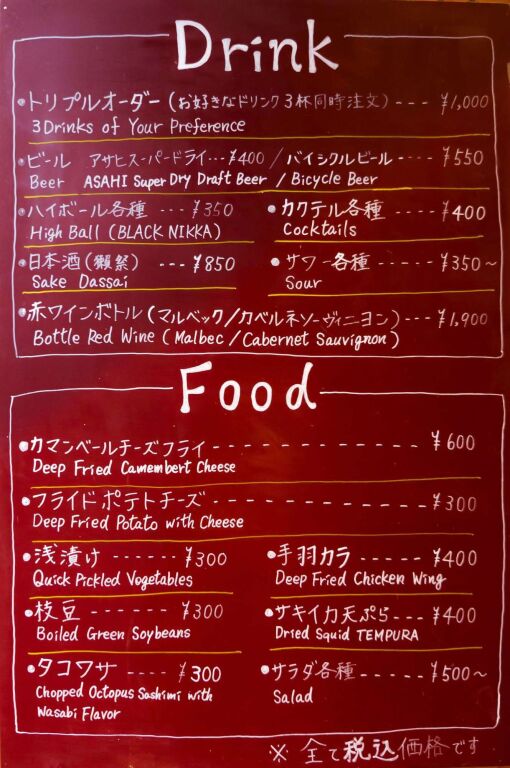 Drink
•トリプルオーダー(お好きなドリンク3杯同時注文)--- ¥1,000
3Drinks of Your Preference
•ビール アサヒスーパードライ…¥400 / バイシクルビール---- ¥550
Beer ASAHI Super Dry Draft Beer / Bicycle Beer
•ハイボール各種 --- ¥350 •カクテル各種 ----- ¥400
High Ball (BLACK NIKKA) Cocktails
•日本酒(獺祭) --- ¥850 •サワー各種 ----- ¥350~
Sake Dassai Sour
•赤ワインボトル(マルベック/カベルネソーヴィニヨン)--- ¥1,900
Bottle Red Wine (Malbec / Cabernet Sauvignon)
Food
•カマンベールチーズフライ -------------- ¥600
Deep Fried Camembert Cheese
•フライドポテトチーズ -------------- ¥300
Deep Fried Potato with Cheese
•浅漬け ------ ¥300 •手羽カラ ----- ¥400
Quick Pickled Vogetables Deep Fried Chicken Wing
•枝豆 ------ ¥300 •サキイカ天ぷら---- ¥400
Boiled Green Soybeans Dried Squid TEMPURA
•タコワサ ---- ¥300 •サラダ各種 ----- ¥500~
Chopped Octopus Sashimi with Salad
Wasabi Flavor
※ 全て税込価格です